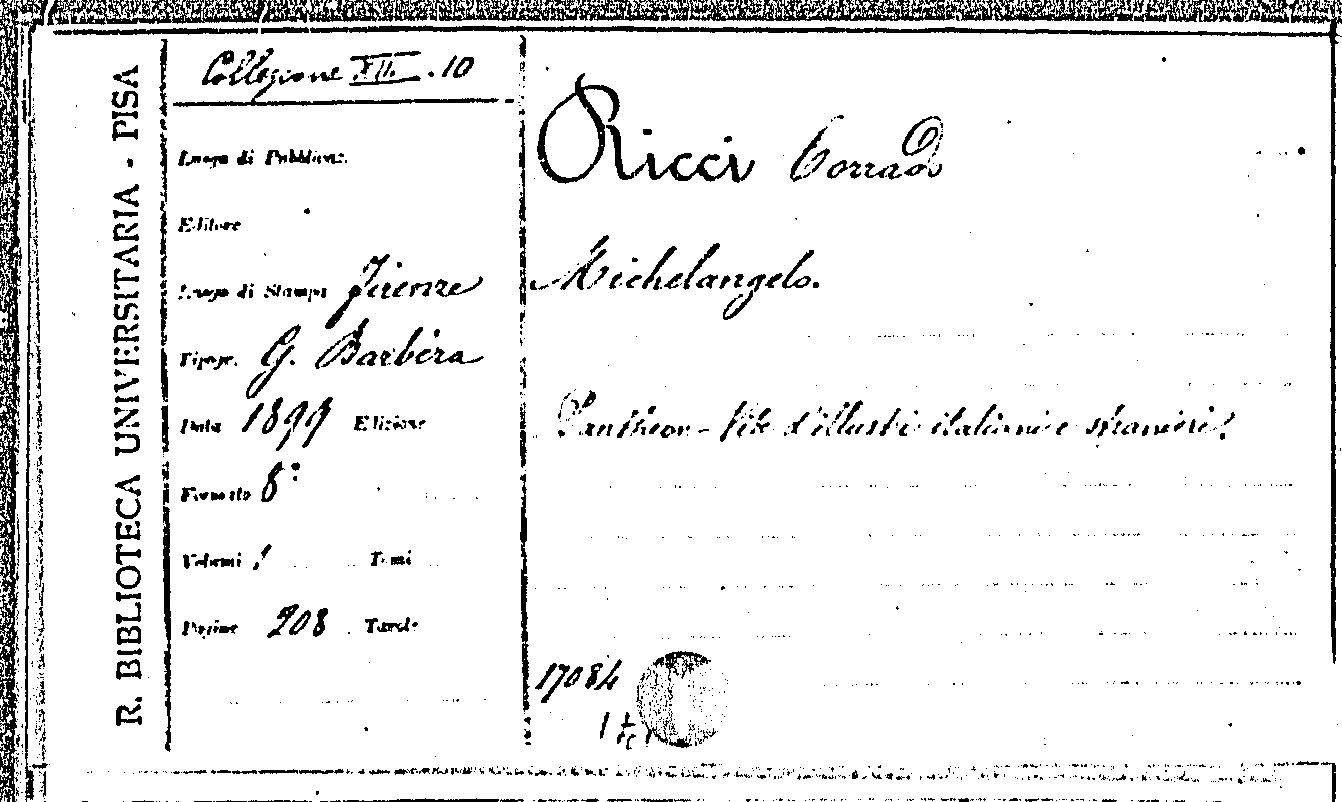 R. BIBLIOTECA UNIVERSITARIA - PISA
Collezione XII. . 10
Luogo di Pubblicaz.
Editore
Luogo di Stampa Firenze
Tipogr. G. Barbèra
Data 1899 Edizione
Formato 8°
Volumi 1 Tomi
Pagine 208 Tavole
Ricci Corrado
Michelangelo.
Pantheon - Vite d'illustri italiani e stranieri.
17084